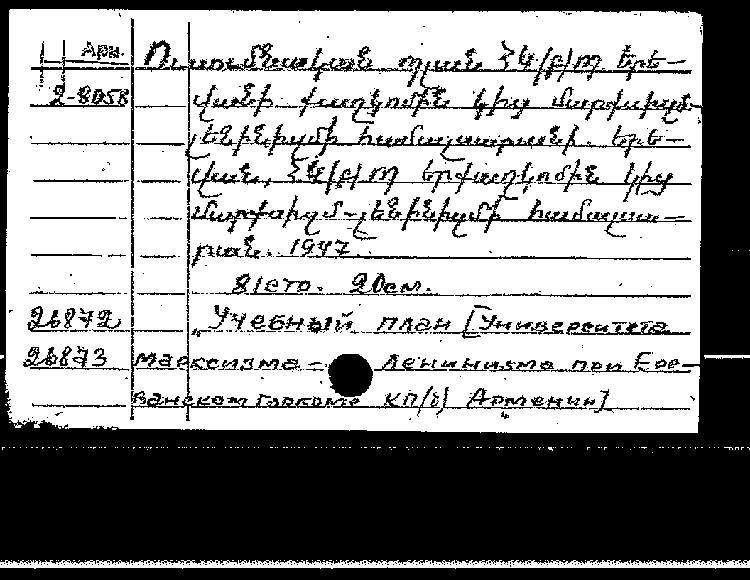 Арм.
Ուսումնական պլան ՀԿ/բ/Պ Երե-
2-8058
վանի քաղկոմին կից մարքսիզմ-
լենինիզմի համալսարանի. Երե-
վան, ՀԿ/բ/Պ Երքաղկոմին կից
մարքսիզմ-լենինիզմի համալսա-
րան. 1947.
81стр. 20см.
26872 „Учебный план [Университета
26873 марксизма - Ленинизма при Ере-
ванском горкоме КП/б/ Армении]"